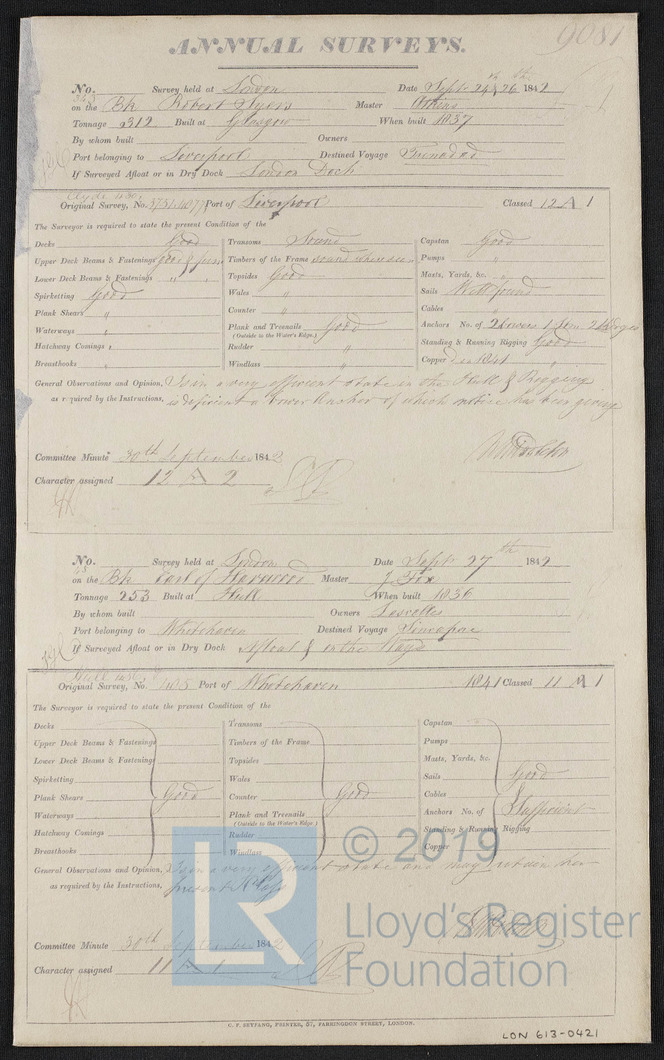 9081
ANNUAL SURVEYS.
No. Survey held at London Date Sept 24th & 26th 1842
on the Bk Robert Syers Master
Tonnage 312 Built at Glasgow When built 1837
By whom built Owners
Port belonging to Liverpool Destined Voyage Trinadad
If Surveyed Afloat or in Dry Dock London Dock
Clyde
Original Survey, No. Port of Liverpool Classed 12 A 1
The Surveyor is required to state the present Condition of the
Decks Good
Upper Deck Beams & Fastenings
Lower Deck Beams & Fastenings "
Spirketting Good
Plank Shears "
Waterways "
Hatchway Comings "
Breasthooks "
Transoms Sound
Timbers of the Frame
Topsides Good
Wales "
Counter "
Plank and Treenails Good
(Outside to the Water's Edge.)
Rudder "
Windlass "
Capstan Good
Pumps "
Masts, Yards, &c. "
Sails Well found
Cables "
Anchors No. of 2 Bowers 1
Standing & Running Rigging Good
Copper in 1841
General Observations and Opinion, Is in a very efficient state in the Hull & Rigging
as required by the Instructions, is deficient a Bower Anchor of which notice has been
Committee Minute 30th September 1842
Character assigned 12 A 2
No. Survey held at London Date Sept 27th 1842
on the Bk Earl of Harewood Master J Fox
Tonnage 253 Built at Hull When built 1836
By whom built Owners
Port belonging to Whitehaven Destined Voyage Sincapore
If Surveyed Afloat or in Dry Dock Afloat & on the
Hull 1836
Original Survey, No. Port of Whitehaven 1841 Classed 11 A 1
The Surveyor is required to state the present Condition of the
Decks
Upper Deck Beams & Fastenings
Lower Deck Beams & Fastenings
Spirketting
Plank Shears Good
Waterways
Hatchway Comings
Breasthooks
Transoms
Timbers of the Frame
Topsides
Wales
Counter Good
Plank and Treenails
(Outside to the Water's Edge.)
Rudder
Windlass
Capstan
Pumps
Masts, Yards, &c.
Sails Good
Cables
Anchors No. of Sufficient
Standing & Running Rigging
Copper
General Observations and Opinion, Is in a very efficient state and may retain her
as required by the Instructions, present Class
Committee Minute 30th September 1842
Character assigned 11 A 1
LR © 2019
Lloyd's Register
Foundation
C. F. SEYFANG, PRINTER, 57, FARRINGDON STREET, LONDON.
LON 613-0421